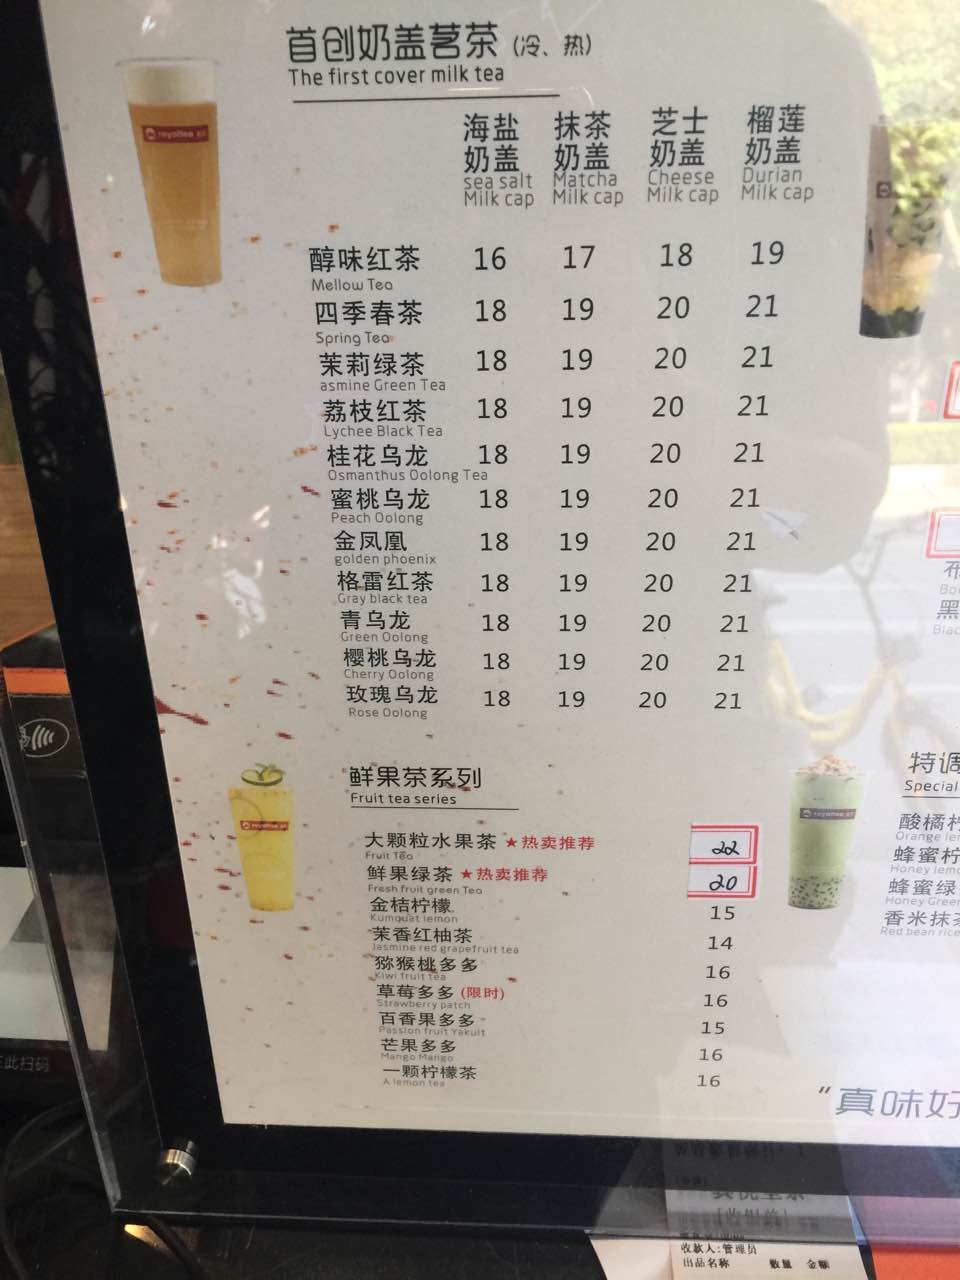 首创奶盖茗茶（冷、热）
The first cover milk tea
海盐奶盖 抹茶奶盖 芝士奶盖 榴莲奶盖
sea salt Milk cap Matcha Milk cap Cheese Milk cap Durian Milk cap
醇味红茶 16 17 18 19
Mellow Tea
四季春茶 18 19 20 21
Spring Tea
茉莉绿茶 18 19 20 21
asmine Green Tea
荔枝红茶 18 19 20 21
Lychee Black Tea
桂花乌龙 18 19 20 21
Osmanthus Oolong Tea
蜜桃乌龙 18 19 20 21
Peach Oolong
金凤凰 18 19 20 21
golden phoenix
格雷红茶 18 19 20 21
Gray black tea
青乌龙 18 19 20 21
Green Oolong
樱桃乌龙 18 19 20 21
Cherry Oolong
玫瑰乌龙 18 19 20 21
Rose Oolong
鲜果茶系列
Fruit tea series
大颗粒水果茶 ★热卖推荐 22
Fruit Tea
鲜果绿茶 ★热卖推荐 20
Fresh fruit green Tea
金桔柠檬 15
Kumquat lemon
茉香红柚茶 14
Jasmine red grapefruit tea
猕猴桃多多 16
Kiwi fruit tea
草莓多多(限时) 16
Strawberry patch
百香果多多 15
Passion fruit Yakult
芒果多多 16
Mango Mango
一颗柠檬茶 16
A lemon tea
布
黑
特调
Special
酸橘柠
Orange lem
蜂蜜柠
Honey lemo
蜂蜜绿
Honey Green
香米抹茶
Red bean rice
“真味好
royaltea
此扫码
收款人:管理员
出品名称 数量 金额